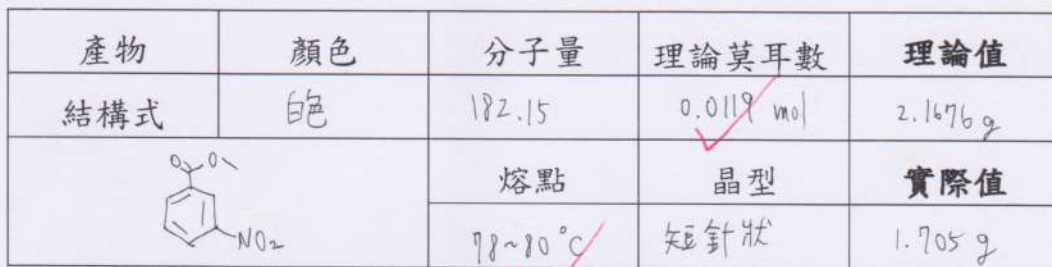 產物 顏色 分子量 理論莫耳數 理論值
結構式 白色 182.15 0.0119 mol 2.1676 g
O O
NO2
熔點 晶型 實際值
78~80 °C 短針狀 1.705 g